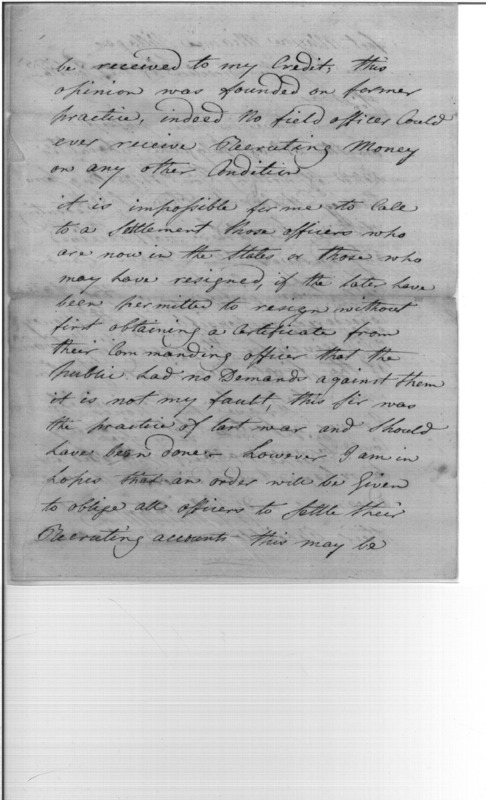 be received to my Credit; this
opinion was founded on former
practice, indeed No field officer Could
ever receive Recruiting Money
on any other Condition
it is impossible for me to Cale
to a Settlement those officers who
are now in the States or those who
may have resigned, if the later have
been permitted to resign without
first obtaining a Certificate from
their Commanding officer that the
Public had no Demands against them
it is not my fault, this Sir was
the practice of last war and Should
have been done - however I am in
hopes that an order will be Given
to oblige all officers to Settle their
Recruiting accounts this may be